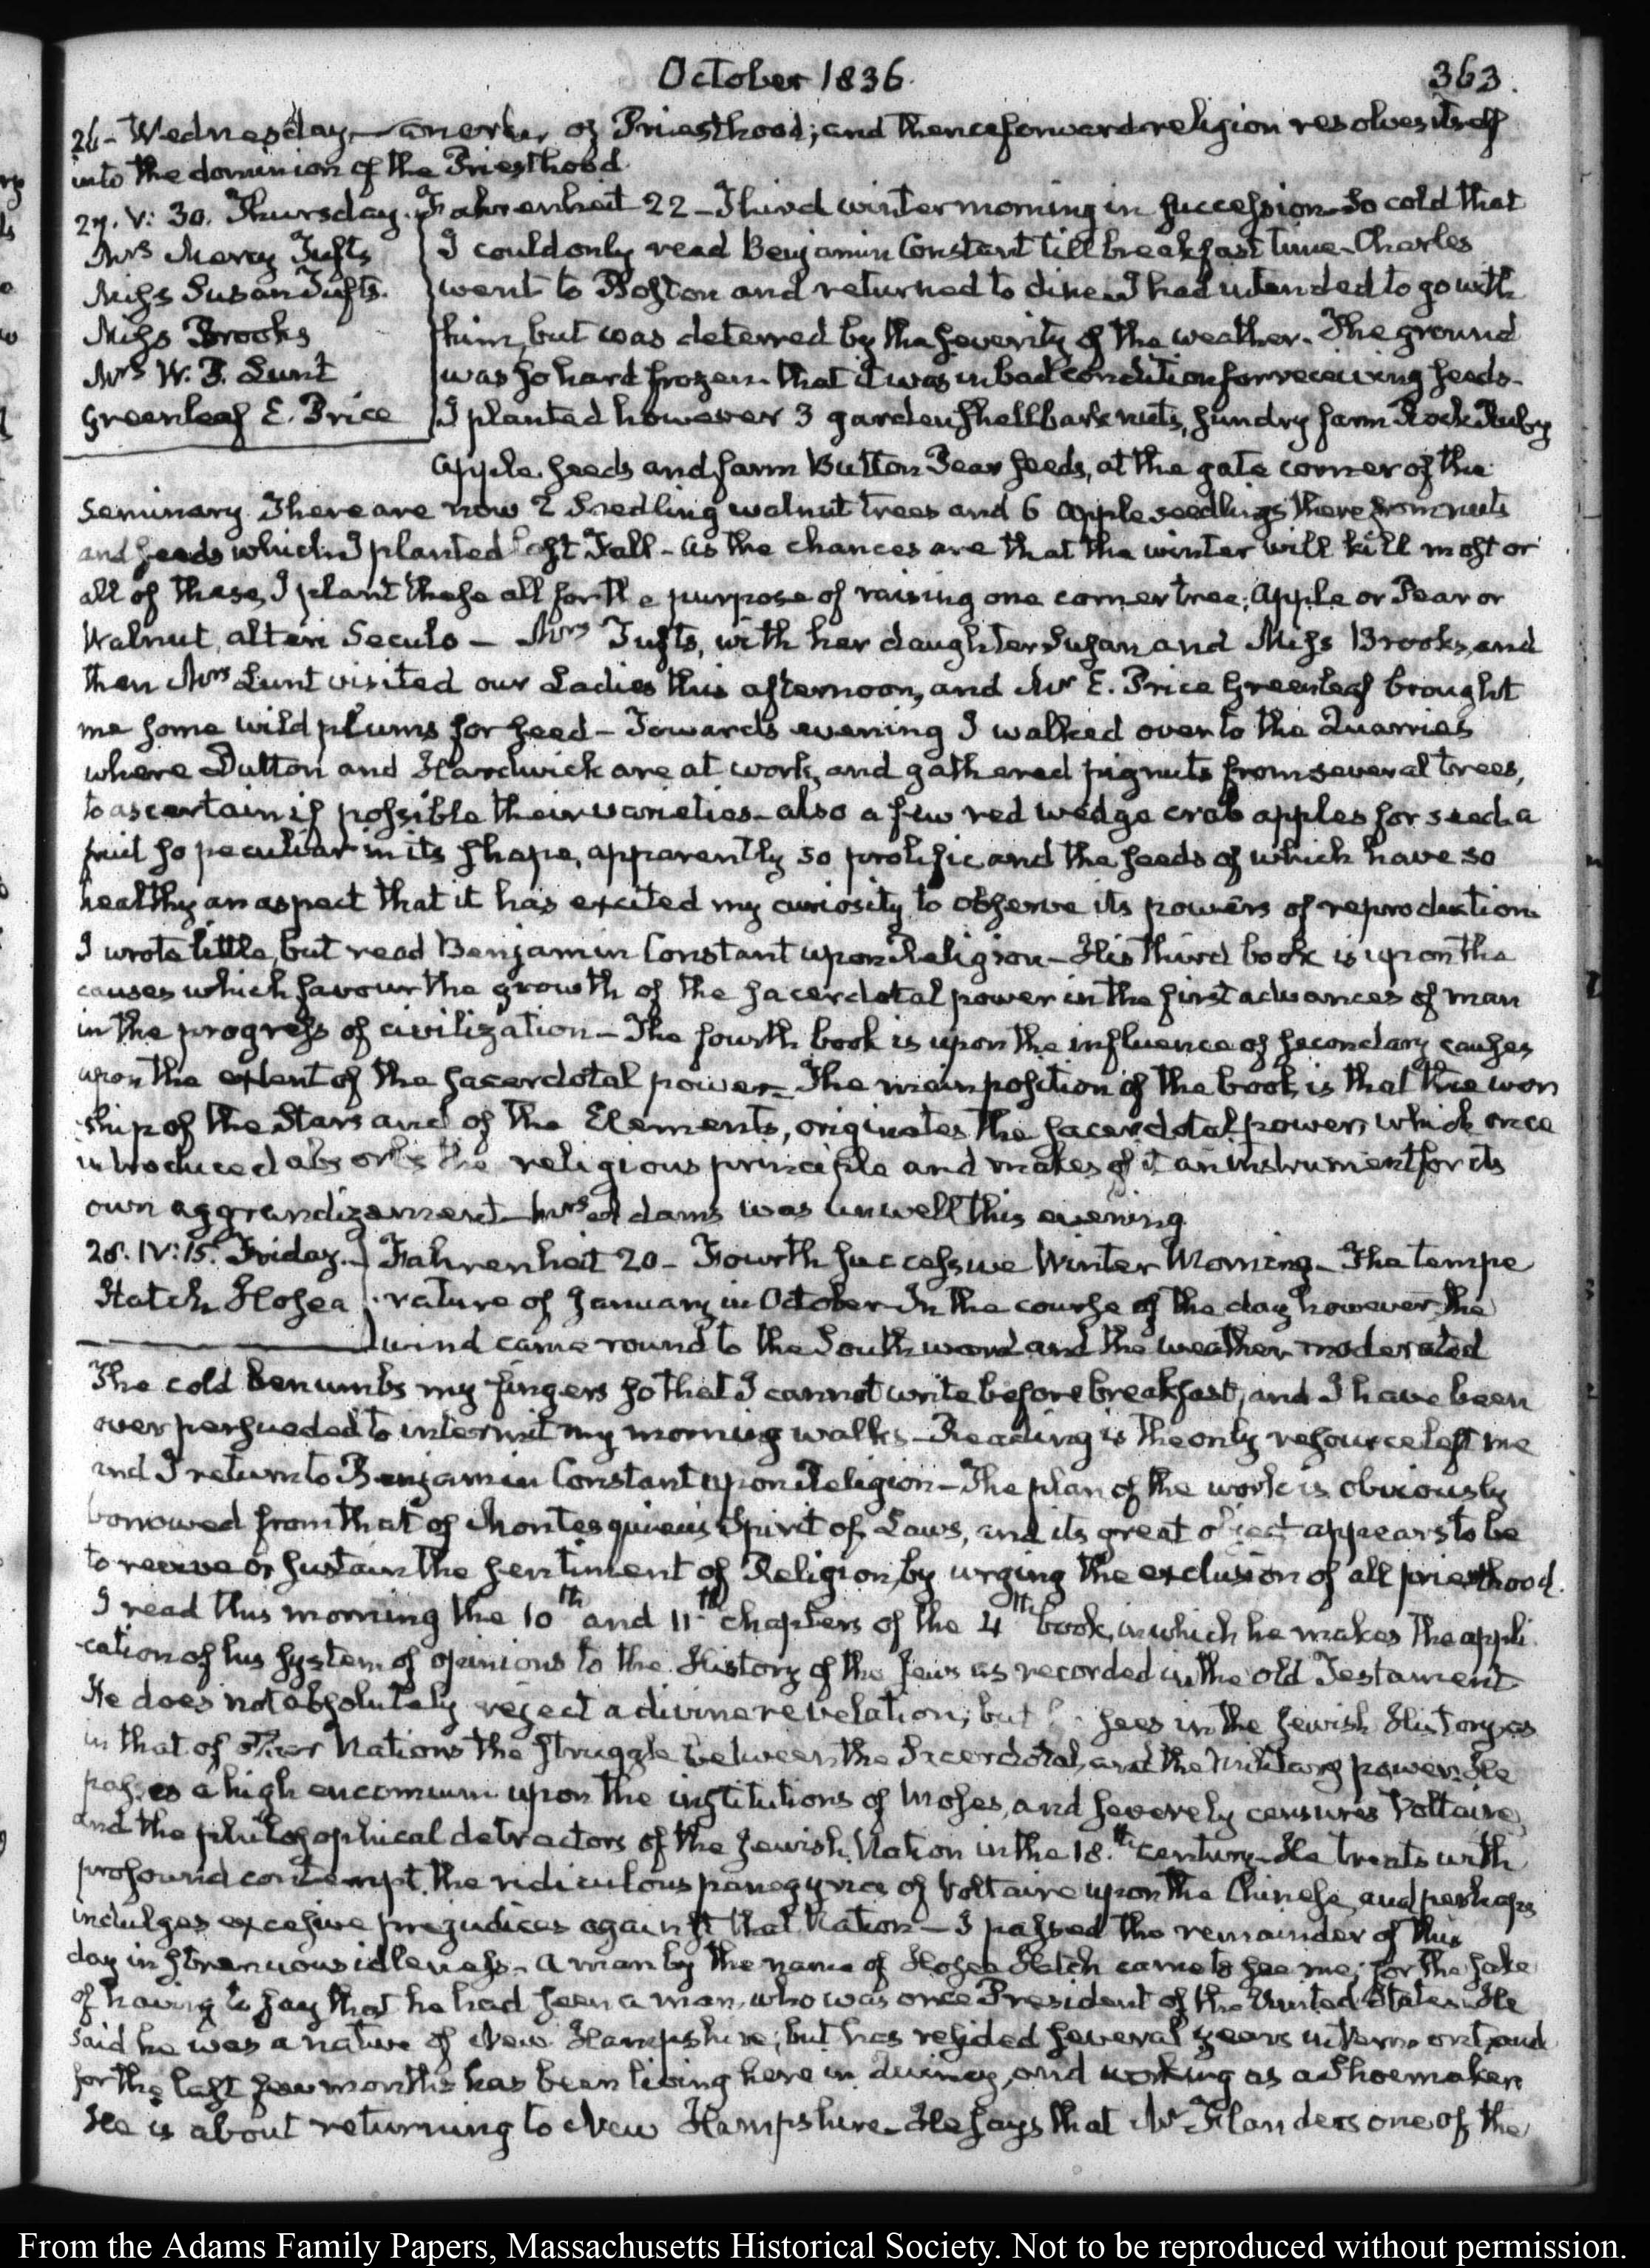 October 1836.
363.
26 - Wednesday — an order of Priesthood; and thenceforward religion resolves itself
into the dominion of the Priesthood.
27. V: 30. Thursday. Fahrenheit 22 - Third winter morning in succession - So cold that
Mrs Mercy Tufts
I could only read Benjamin Constant till breakfast time - Charles
Miss Susan Tufts.
went to Boston and returned to dine - I had intended to go with
Miss Brooks
him, but was deterred by the severity of the weather - The ground
Mrs W. P. Lunt
was so hard frozen that it was in bad condition for receiving seeds -
Greenleaf E. Price
I planted however 3 garden shellbark nuts, sundry farm Rock Ruby
apple seeds and farm Button Pear seeds, at the gate corner of the
Seminary. There are now 2 Seedling walnut trees and 6 apple seedlings there from nuts
and seeds which I planted last Fall - as the chances are that the winter will kill most or
all of these, I plant these all for the purpose of raising one corner tree; apple or Pear or
Walnut, alteri Seculo — Mrs Tufts, with her daughter Susan and Miss Brooks, and
then Mrs Lunt visited our Ladies this afternoon, and Mr E. Price Greenleaf brought
me some wild plums for seed - Towards evening I walked over to the Quarries
where Dutton and Hardwick are at work, and gathered pignuts from several trees,
to ascertain if possible their varieties - also a few red wedge crab apples for seed - a
fruit so peculiar in its shape, apparently so prolific and the seeds of which have so
healthy an aspect that it has excited my curiosity to observe its powers of reproduction.
I wrote little, but read Benjamin Constant upon Religion - His third book is upon the
causes which favour the growth of the sacerdotal power in the first advances of man
in the progress of civilization - The fourth book is upon the influence of secondary causes
upon the extent of the sacerdotal power - The main position of the book is that the wor
ship of the Stars and of the Elements, originates the sacerdotal power, which once
introduced absorbs the religious principle and makes of it an instrument for its
own aggrandizement - Mrs Adams was unwell this evening.
28. IV: 15. Friday. - Fahrenheit 20 - Fourth successive Winter Morning - The tempe
Hatch Hosea
rature of January in October - In the course of the day however the
wind came round to the Southward and the weather moderated
The cold benumbs my fingers so that I cannot write before breakfast, and I have been
over persuaded to intermit my morning walks - Reading is the only resource left me
and I return to Benjamin Constant upon Religion - The plan of the work is obviously
borrowed from that of Montesquieu's Spirit of Laws, and its great object appears to be
to revive or sustain the sentiment of Religion, by urging the exclusion of all priesthood.
I read this morning the 10th and 11th chapters of the 4th book, in which he makes the appli
cation of his system of opinions to the History of the Jews as recorded in the old Testament
He does not absolutely reject a divine revelation; but sees in the Jewish History as
in that of other Nations the struggle between the Sacerdotal, and the military power. He
passes a high encomium upon the institutions of Moses, and severely censures Voltaire,
and the philosophical detractors of the Jewish Nation in the 18th century - He treats with
profound contempt, the ridiculous panegyrics of Voltaire upon the Chinese, and perhaps
indulges excessive prejudices against that Nation - I passed the remainder of this
day in strenuous idleness - A man by the name of Hosea Hatch came to see me; for the sake
of having to say that he had seen a man, who was once President of the United States. He
said he was a native of New Hampshire; but has resided several years in Vermont, and
for the last few months has been living here in Quincy, and working as a Shoemaker.
He is about returning to New Hampshire - He says that Mr Flanders one of the
From the Adams Family Papers, Massachusetts Historical Society. Not to be reproduced without permission.